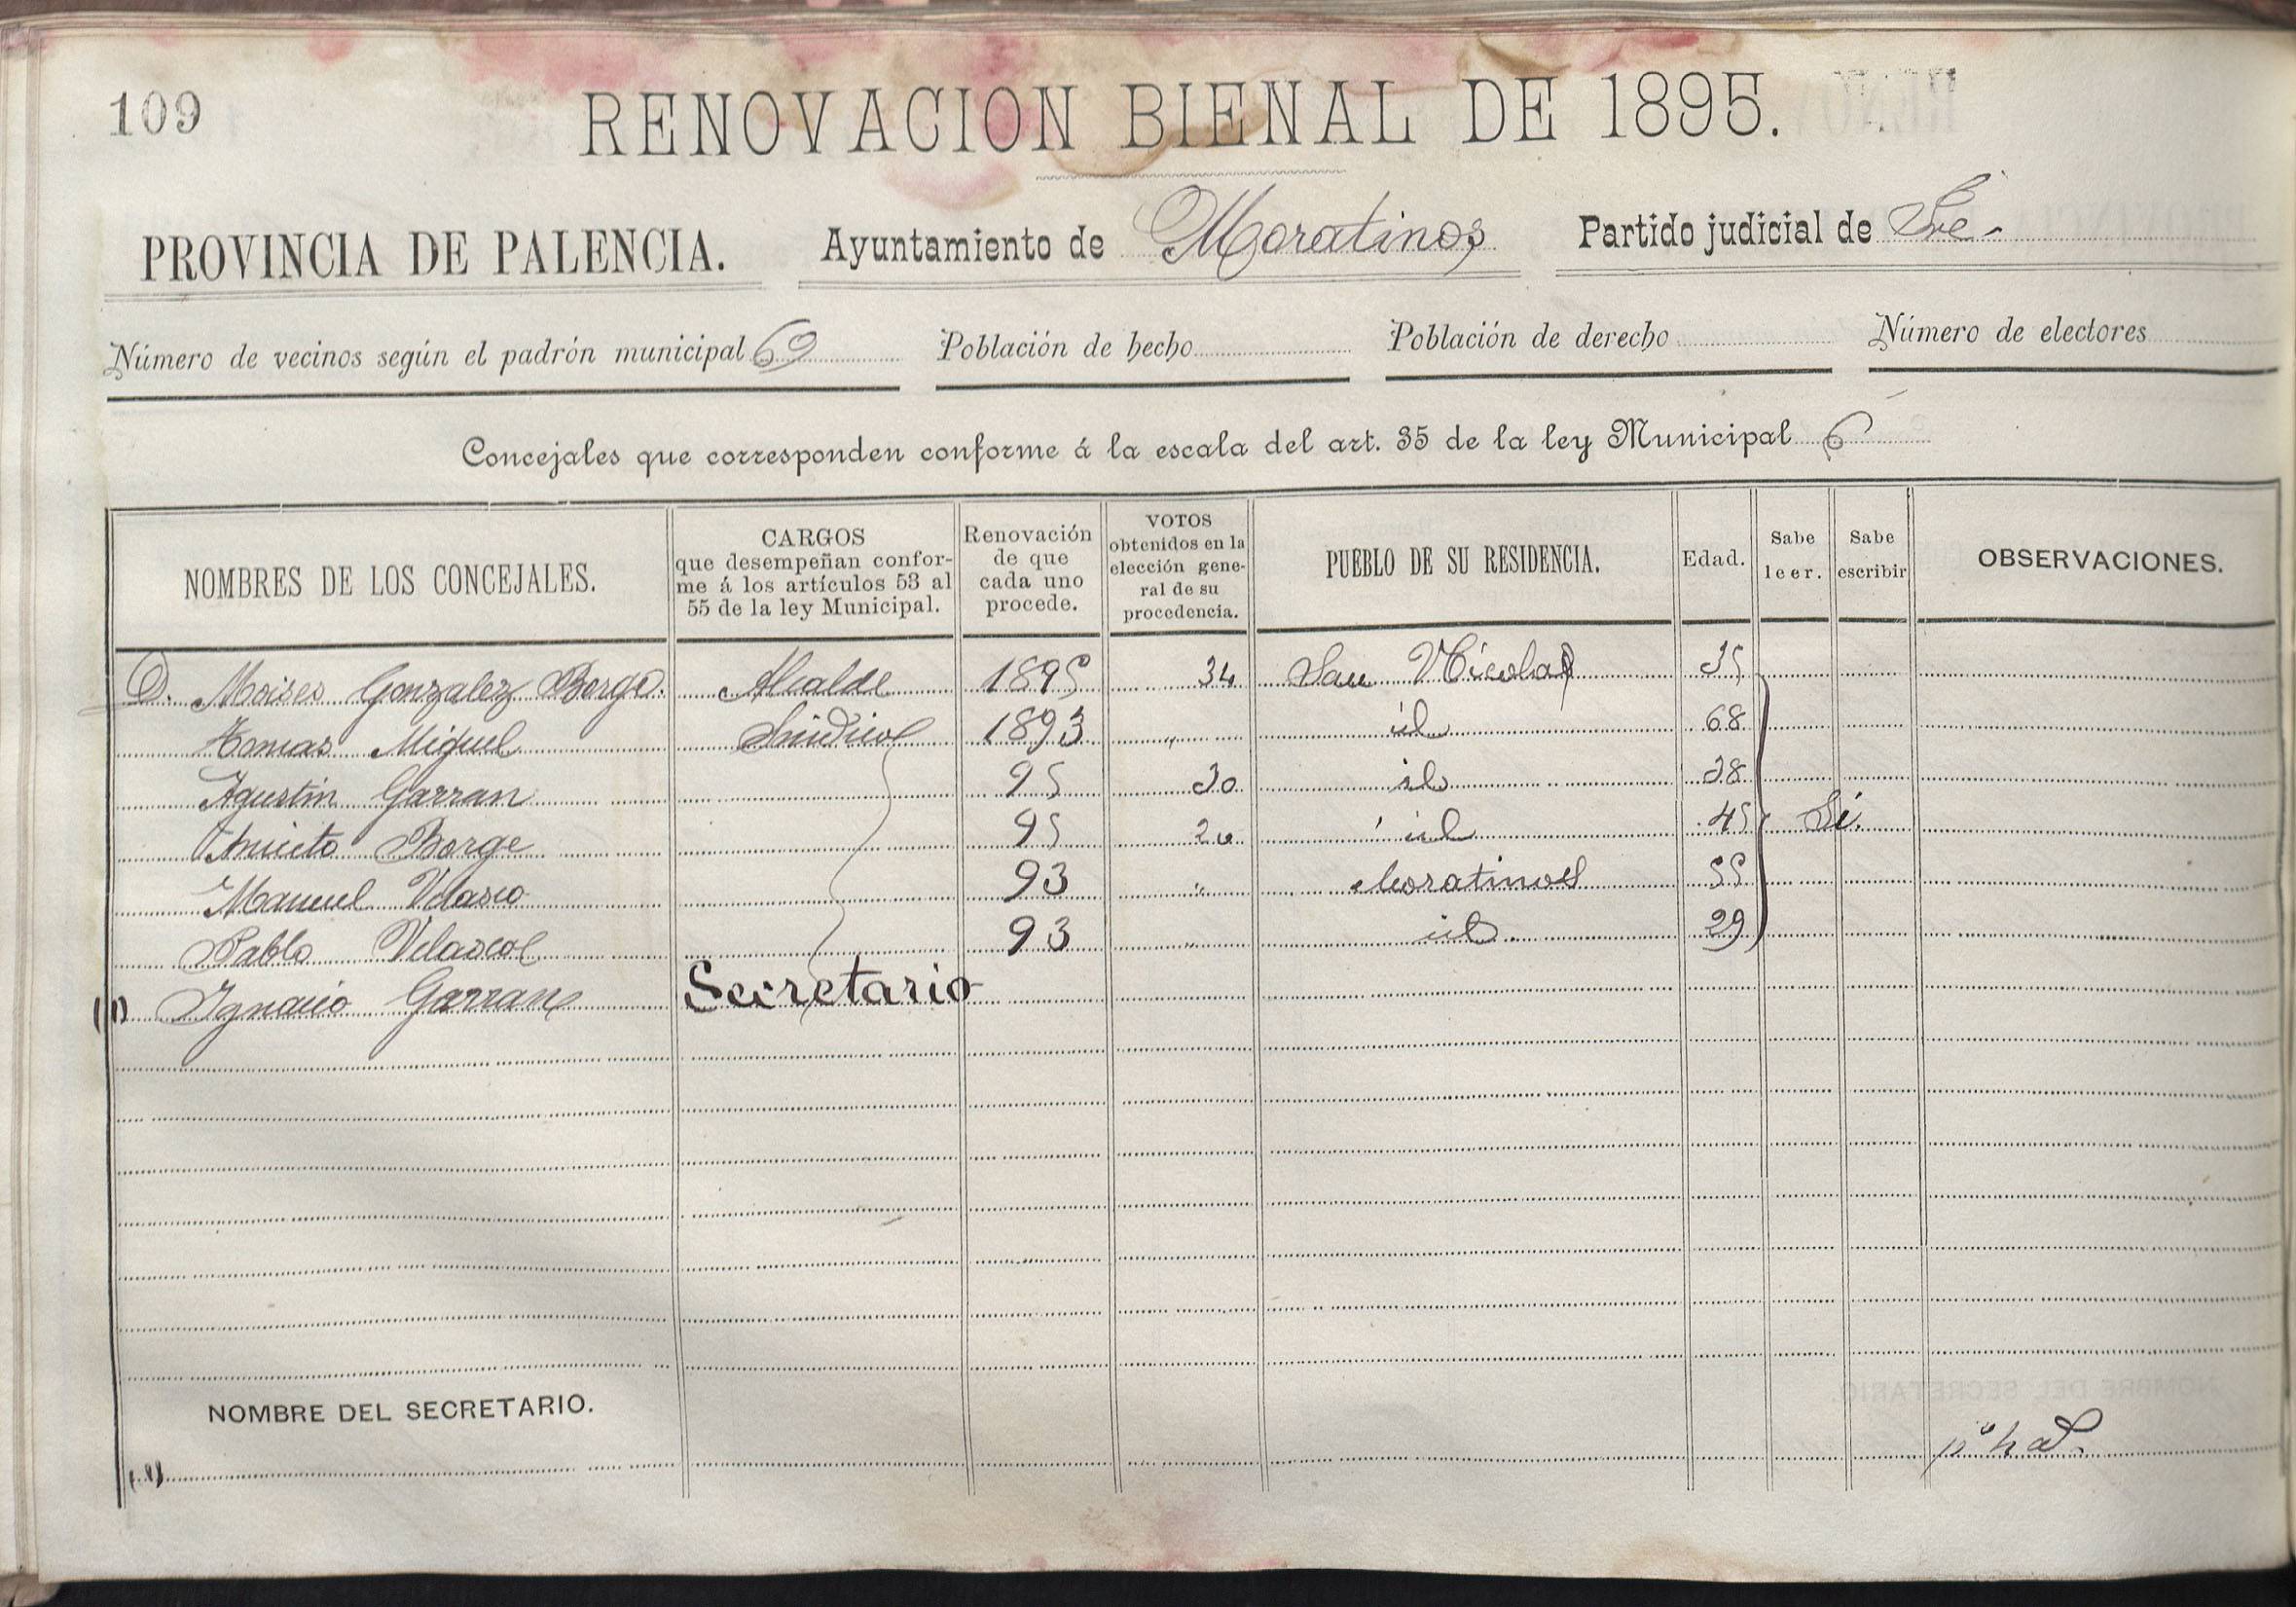 109
RENOVACION BIENAL DE 1895.
PROVINCIA DE PALENCIA. Ayuntamiento de Moratinos Partido judicial de
Número de vecinos según el padrón municipal 69 Población de hecho Población de derecho Número de electores
Concejales que corresponden conforme á la escala del art. 35 de la ley Municipal 6
NOMBRES DE LOS CONCEJALES. CARGOS que desempeñan conforme á los artículos 53 al 55 de la ley Municipal. Renovación de que cada uno procede. VOTOS obtenidos en la elección general de su procedencia. PUEBLO DE SU RESIDENCIA. Edad. Sabe leer. Sabe escribir OBSERVACIONES.
D. Moises Gonzalez Borge. Alcalde 1895 34 San Nicolas 35
Tomas Miguel Sindico 1893 " id 68
Agustin Garran 95 30 id 38
Aniceto Borge 95 20 id 45 Si.
Manuel Velasco 93 " Moratinos 55
Pablo Velasco 93 " id. 29
(1) Ignacio Garran Secretario
NOMBRE DEL SECRETARIO.
(1)